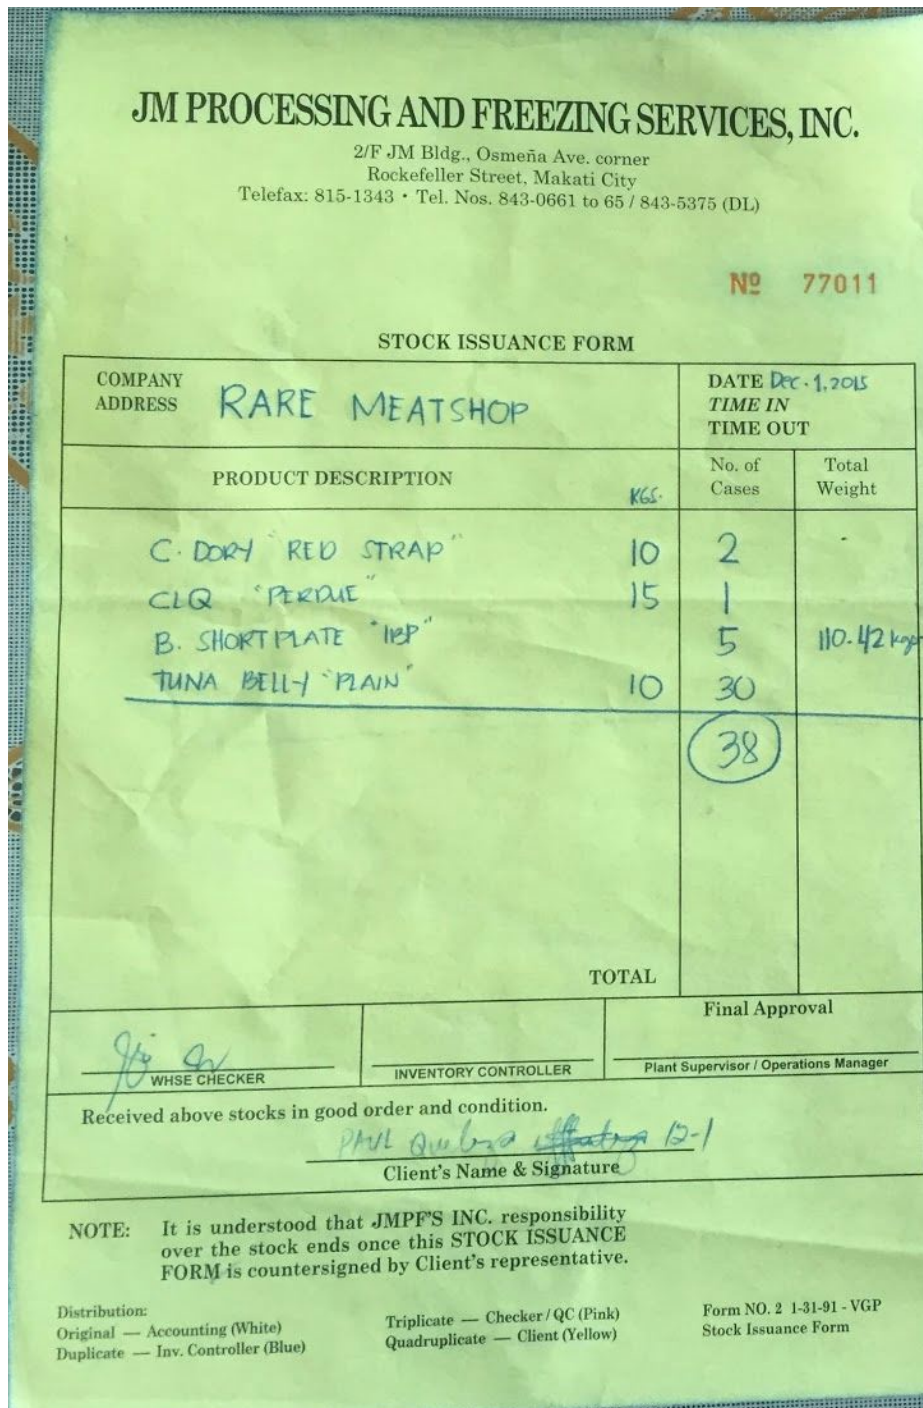 JM PROCESSING AND FREEZING SERVICES, INC.
2/F JM Bldg., Osmeña Ave. corner
Rockefeller Street, Makati City
Telefax: 815-1343 • Tel. Nos. 843-0661 to 65 / 843-5375 (DL)
Nº 77011
STOCK ISSUANCE FORM
COMPANY ADDRESS RARE MEATSHOP
DATE Dec. 1, 2015
TIME IN
TIME OUT
PRODUCT DESCRIPTION KGS. No. of Cases Total Weight
C. DORY "RED STRAP" 10 2 -
CLQ "PERDUE" 15 1
B. SHORTPLATE "IBP" 5 110.42 kgs
TUNA BELLY "PLAIN" 10 30
38
TOTAL
Final Approval
WHSE CHECKER
INVENTORY CONTROLLER
Plant Supervisor / Operations Manager
Received above stocks in good order and condition.
PAUL 12-1
Client's Name & Signature
NOTE: It is understood that JMPF'S INC. responsibility
over the stock ends once this STOCK ISSUANCE
FORM is countersigned by Client's representative.
Distribution:
Original — Accounting (White)
Duplicate — Inv. Controller (Blue)
Triplicate — Checker / QC (Pink)
Quadruplicate — Client (Yellow)
Form NO. 2 1-31-91 - VGP
Stock Issuance Form